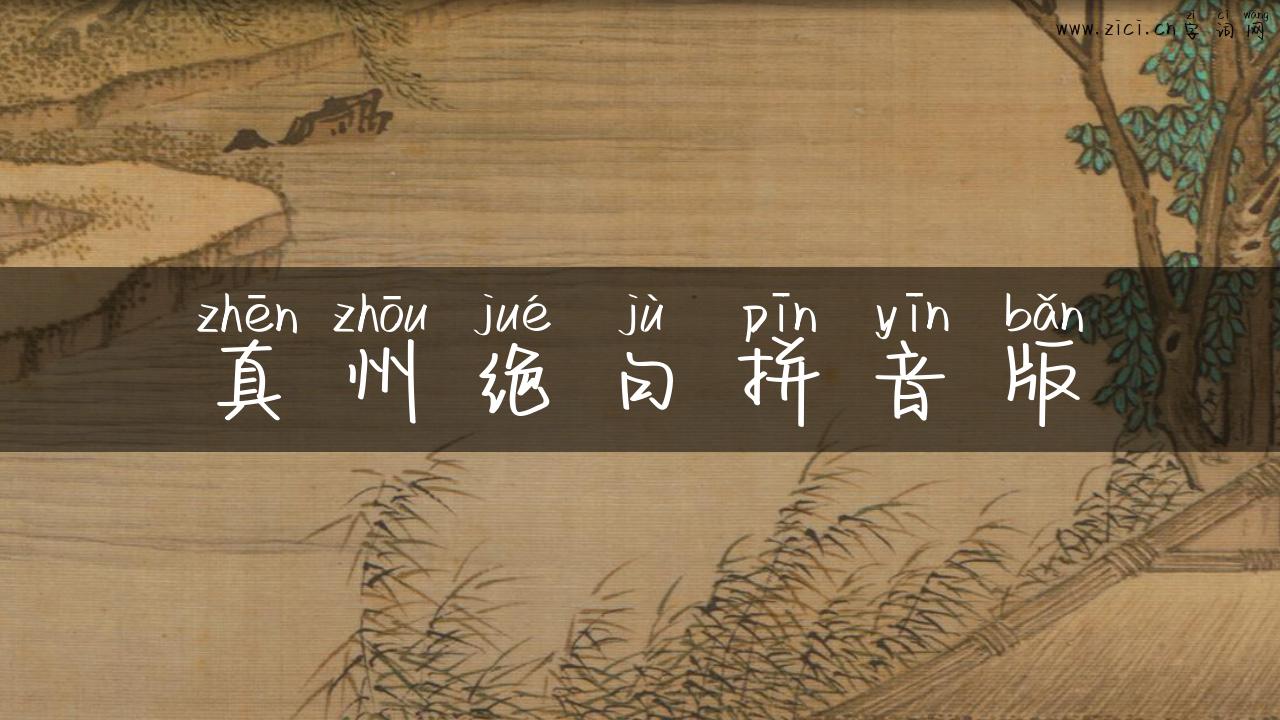 zì cí wǎng
www.zici.cn字词网
zhēn zhōu jué jù pīn yīn bǎn
真州绝句拼音版